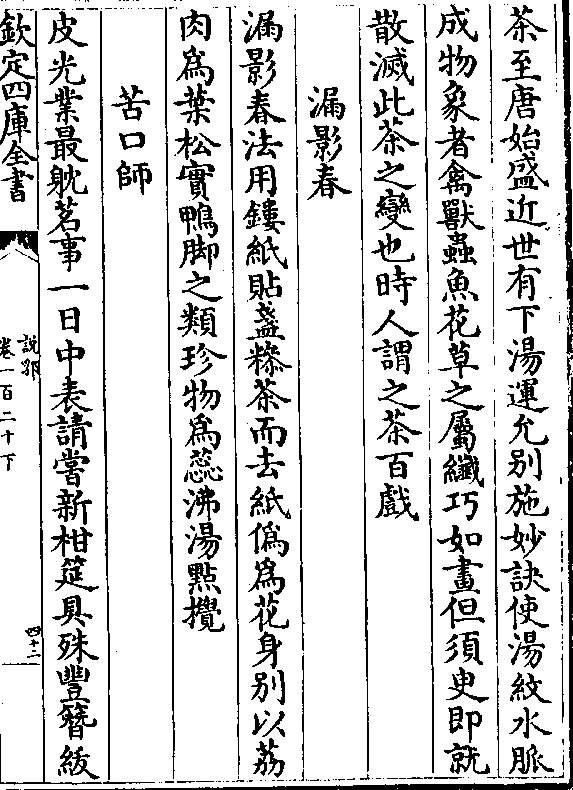 茶至唐始盛近世有下湯運允别施妙訣使湯紋水脈
成物象者禽獸蟲魚花草之屬纎巧如畫但須史即就
散滅此茶之變也時人謂之茶百戲
漏影春
漏影春法用鏤紙貼盞糝茶而去紙偽為花身别以荔
肉為葉松實鴨脚之類珍物為蕊沸湯點攪
苦口師
皮光業最躭茗事一日中表請嘗新柑筵具殊豐簪紱
欽定四庫全書
說郛
卷一百二十下
四十二